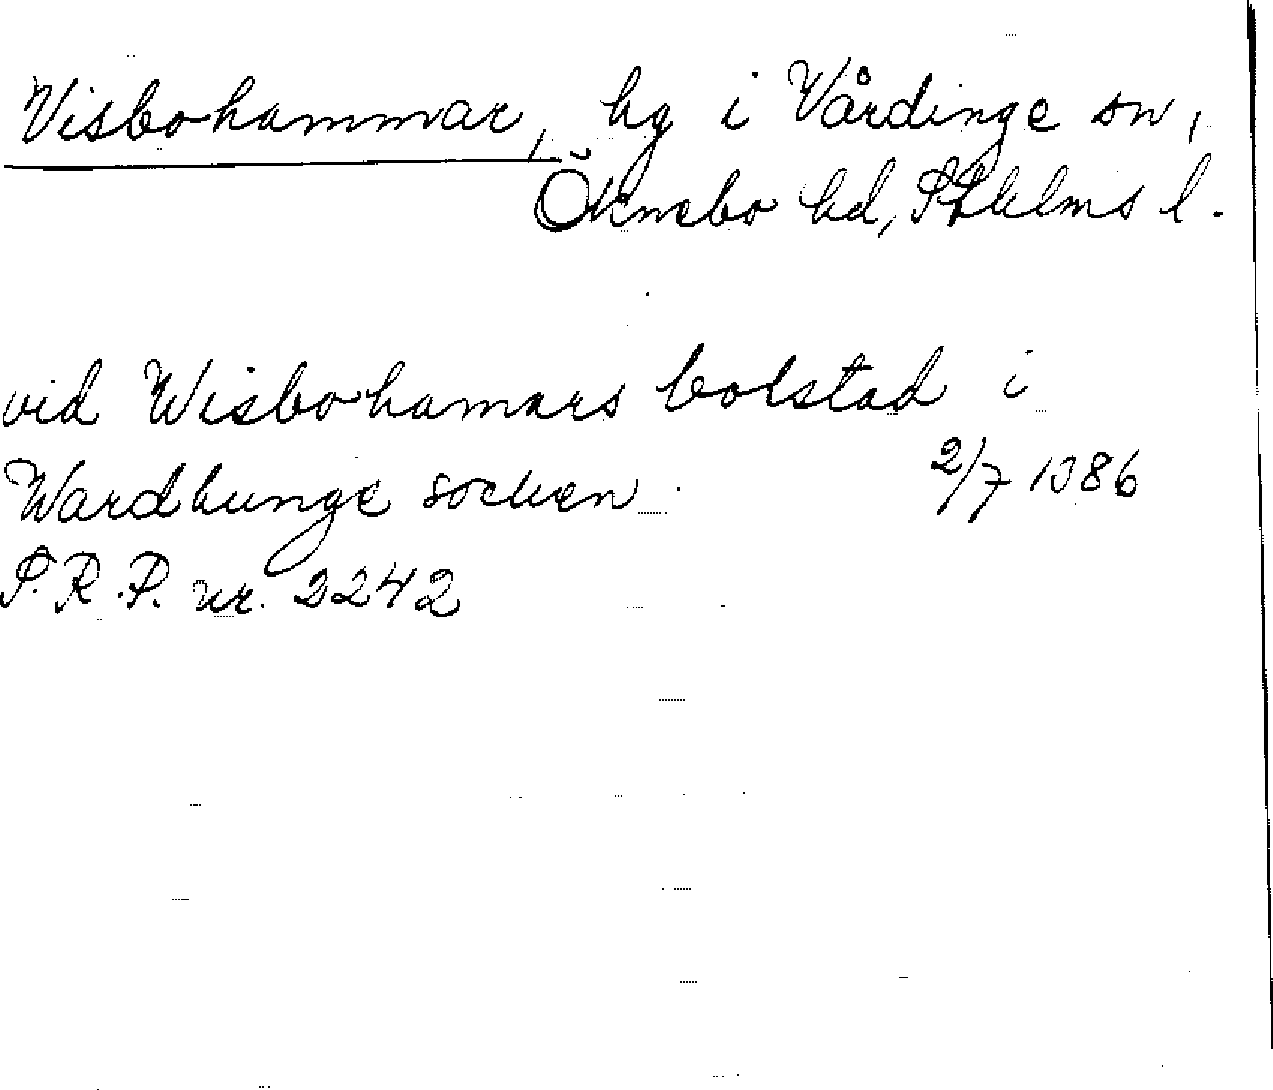 Visbohammar, hg i Vårdinge sn,
Öknebo hd, Sthlms l.
vid Wisbohamars bolstad i
Wardhunge socken. 2/7 1386
S.R.P. nr. 2242